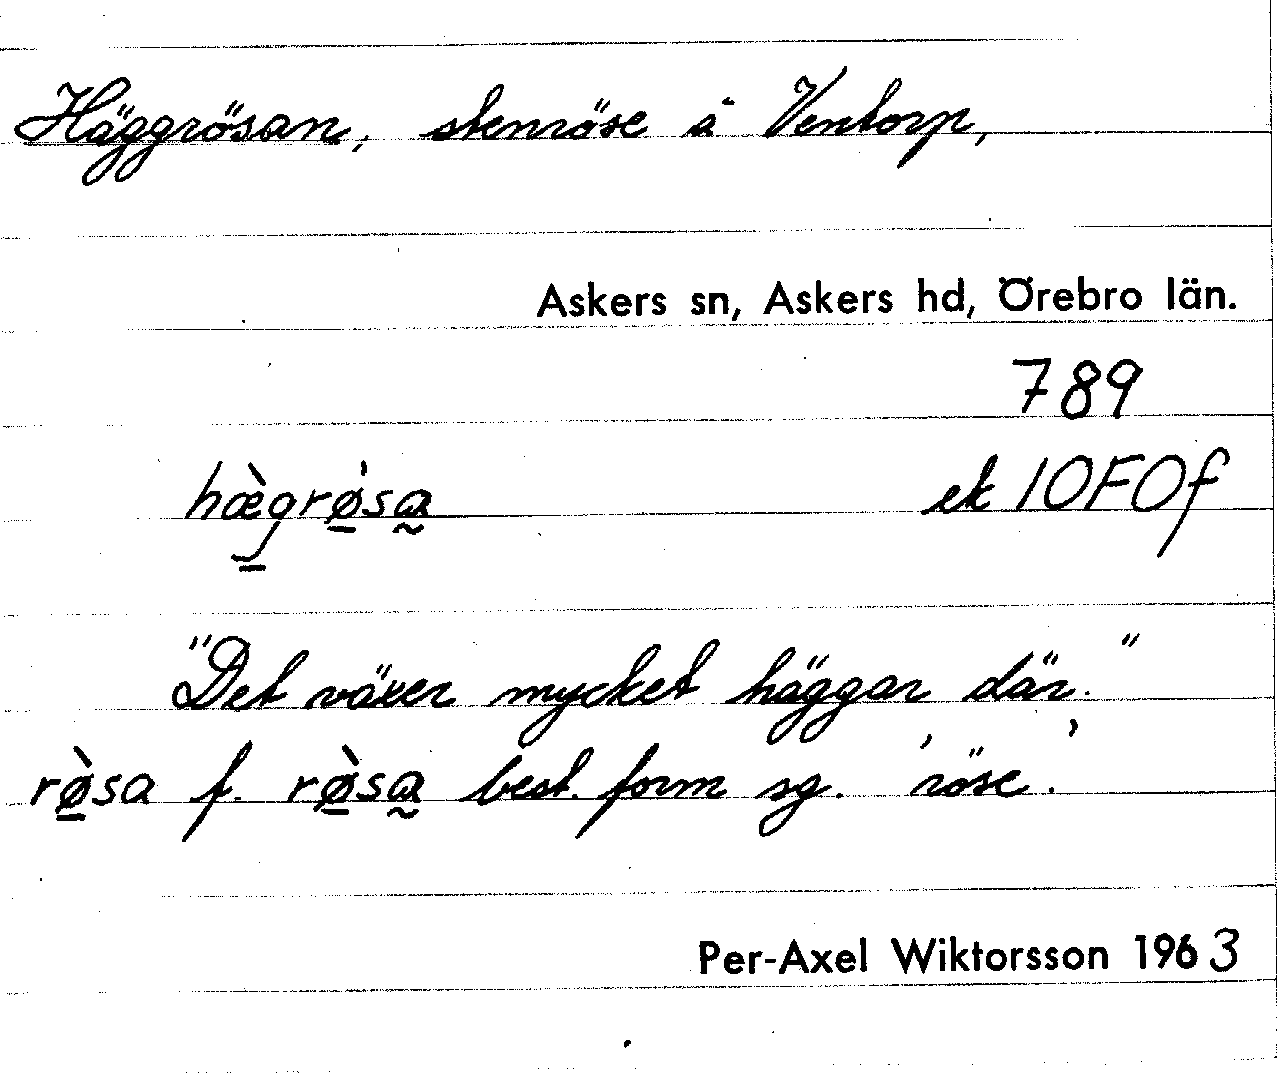 Häggrösan, stenröse å Ventorp,
Askers sn, Askers hd, Örebro län.
789
hæ̀grø̠ˈsa̰ ek 10F0f
"Det växer mycket häggar där."
rø̠̀sa f. rø̠̀sa̰ best. form sg. 'röse'.
Per-Axel Wiktorsson 1963